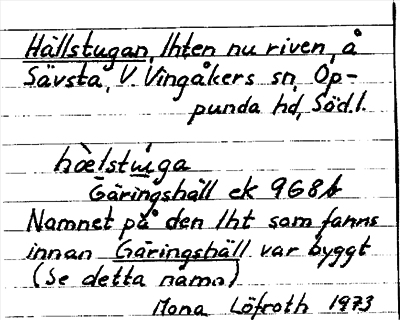 Hällstugan, lhten nu riven, å
Sävsta, V. Vingåkers sn, Op-
punda hd, Söd.l.
Gäringshäll ek 968b
Namnet på den lht som fanns
innan Gäringshäll var byggt
(Se detta namn)
Mona Löfroth 1973